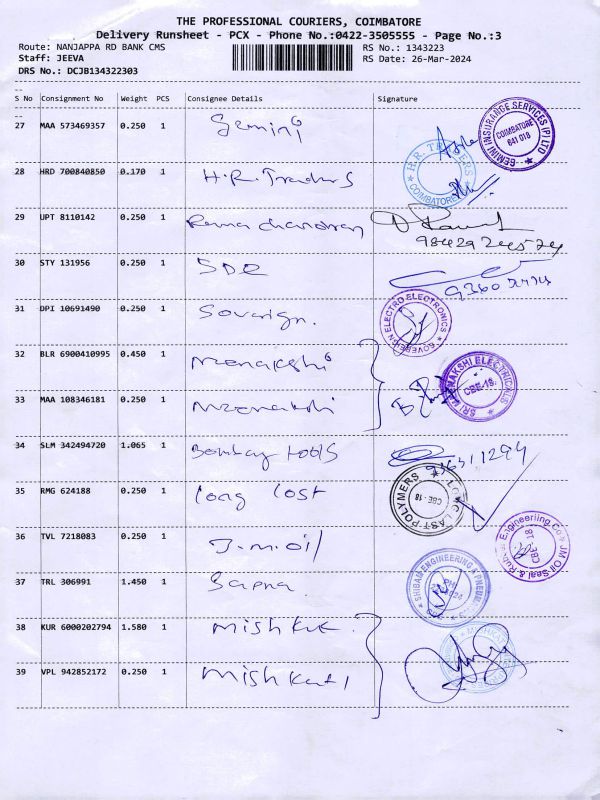 THE PROFESSIONAL COURIERS, COIMBATORE
Delivery Runsheet - PCX - Phone No.:0422-3505555 - Page No.:3
Route: NANJAPPA RD BANK CMS RS No.: 1343223
Staff: JEEVA RS Date: 26-Mar-2024
DRS No.: DCJB134322303
--
S No Consignment No Weight PCS Consignee Details Signature
--
27 MAA 573469357 0.250 1 Gemini GEMINI INSURANCE SERVICES (P) LTD COIMBATORE 641 018
28 HRD 700840850 0.170 1 H.R. Traders H.R. TRADERS COIMBATORE
29 UPT 8110142 0.250 1 Rama chandran
30 STY 131956 0.250 1 SDR
31 DPI 10691490 0.250 1 Soverign. SOVEREIGN ELECTRO ELECTRONICS
32 BLR 6900410995 0.450 1 Meenakshi
33 MAA 108346181 0.250 1 Meenakshi SRI MEENAKSHI ELECTRICALS CBE-18.
34 SLM 342494720 1.065 1 Bombay tools 936311294
35 RMG 624188 0.250 1 Long Last LONG LAST POLYMERS CBE - 18
36 TVL 7218083 0.250 1 J.m.oil JM Oil Seal & Rubber Engineering Co CBE 18
37 TRL 306991 1.450 1 Sapna SHIBAM ENGINEERING & PNEUM
38 KUR 6000202794 1.580 1 Mishkat
39 VPL 942852172 0.250 1 Mishkat